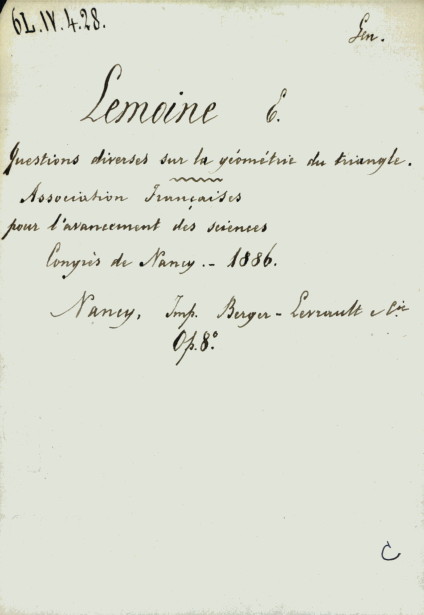 6L.IV.4.28.
Gen.
Lemoine E.
Questions diverses sur la géométrie du triangle.
Association Françaises
pour l'avancement des sciences
Congrès de Nancy. - 1886.
Nancy, Imp. Berger-Levrault e Cie
Op. 8°.
C